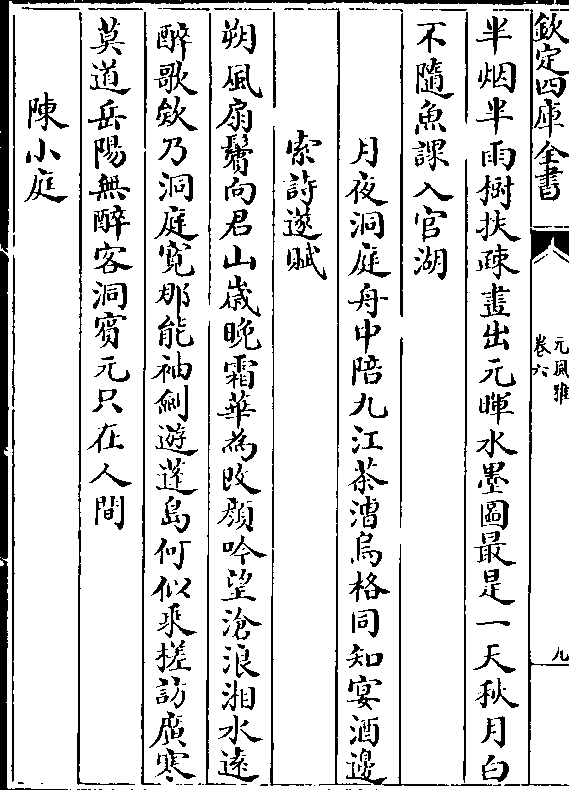 欽定四庫全書
元風雅
卷六
九
半烟半雨樹扶疎畫出元暉水墨圖最是一天秋月白
不隨魚課入官湖
月夜洞庭舟中陪九江茶漕烏格同知宴酒邊
索詩遂賦
朔風扇鬢向君山歲晚霜華為改顔吟望滄浪湘水遠
醉歌欸乃洞庭寛那能袖劍遊蓬島何似乘槎訪廣寒
莫道岳陽無醉客洞賓元只在人間
陳小庭